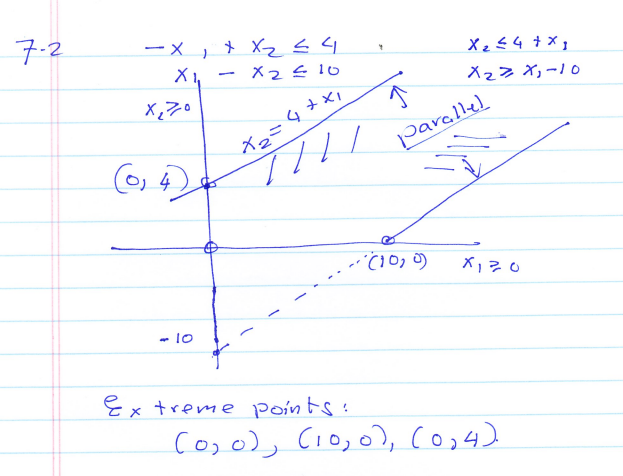 7-2
-x₁ + x₂ ≤ 4
x₂ ≤ 4 + x₁
x₁ - x₂ ≤ 10
x₂ ≥ x₁ - 10
x₂ ≥ 0
x₂ = 4 + x₁
parallel
(0, 4)
(10, 0)
x₁ ≥ 0
-10
Extreme points:
(0, 0), (10, 0), (0, 4).